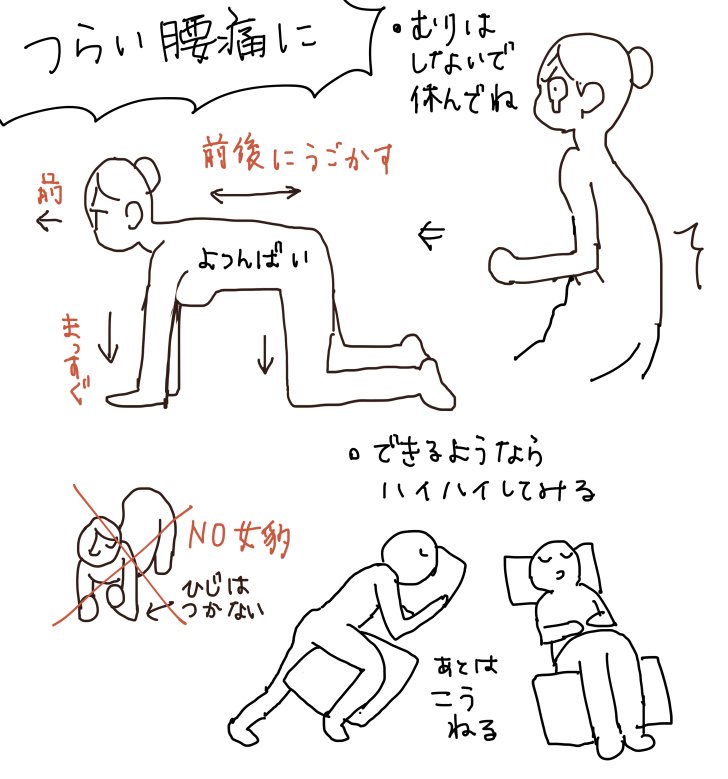 つらい腰痛に
・むりは
しないで
休んでね
前後にうごかす
前
よつんばい
まっすぐ
・できるようなら
ハイハイしてみる
NO女豹
ひじは
つかない
あとは
こう
ねる